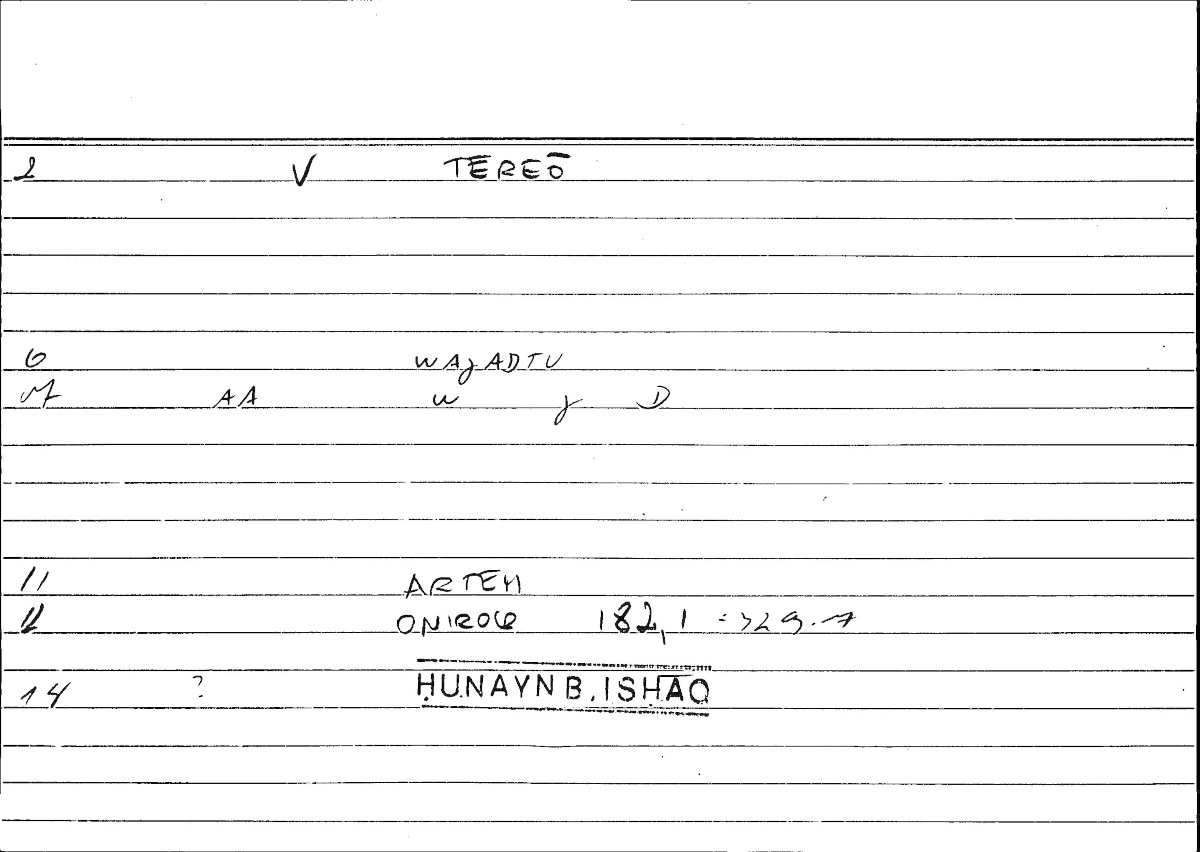 2 V TEREŌ
6 WAJADTU
AA W J D
11 ARTEM
12 ONIROCR 182,1 = 329.7
14 ? ḤUNAYN B. ISḤĀQ